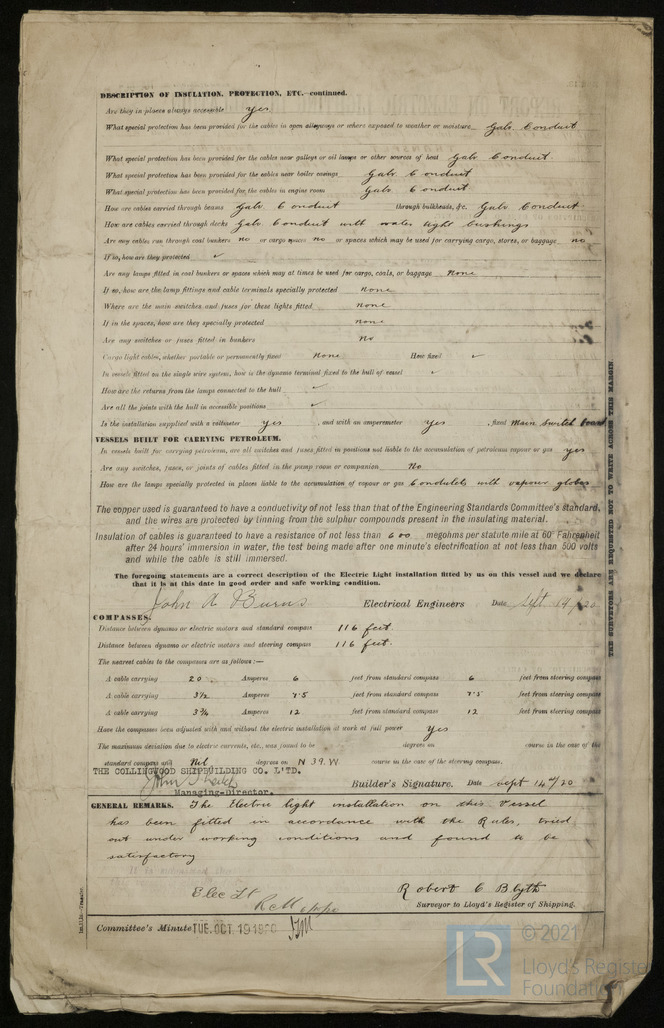 DESCRIPTION OF INSULATION, PROTECTION, ETC.—continued.
Are they in places always accessible yes
What special protection has been provided for the cables in open alleyways or where exposed to weather or moisture Galv. Conduit
What special protection has been provided for the cables near galleys or oil lamps or other sources of heat Galv Conduit
What special protection has been provided for the cables near boiler casings Galv Conduit
What special protection has been provided for the cables in engine room Galv Conduit
How are cables carried through beams Galv Conduit through bulkheads, &c. Galv Conduit
How are cables carried through decks Galv. Conduit with water tight bushings
Are any cables run through coal bunkers no or cargo spaces no or spaces which may be used for carrying cargo, stores, or baggage no
If so, how are they protected ✓
Are any lamps fitted in coal bunkers or spaces which may at times be used for cargo, coals, or baggage None
If so, how are the lamp fittings and cable terminals specially protected none
Where are the main switches and fuses for these lights fitted none
If in the spaces, how are they specially protected none
Are any switches or fuses fitted in bunkers No
Cargo light cables, whether portable or permanently fixed None How fixed ✓
In vessels fitted on the single wire system, how is the dynamo terminal fixed to the hull of vessel ✓
How are the returns from the lamps connected to the hull ✓
Are all the joints with the hull in accessible positions ✓
Is the installation supplied with a voltmeter yes , and with an amperemeter yes , fixed Main Switch board
VESSELS BUILT FOR CARRYING PETROLEUM.
In vessels built for carrying petroleum, are all switches and fuses fitted in positions not liable to the accumulation of petroleum vapour or gas yes
Are any switches, fuses, or joints of cables fitted in the pump room or companion No
How are the lamps specially protected in places liable to the accumulation of vapour or gas Condulets with vapour globes
The copper used is guaranteed to have a conductivity of not less than that of the Engineering Standards Committee's standard,
and the wires are protected by tinning from the sulphur compounds present in the insulating material.
Insulation of cables is guaranteed to have a resistance of not less than 600 megohms per statute mile at 60° Fahrenheit
after 24 hours' immersion in water, the test being made after one minute's electrification at not less than 500 volts
and while the cable is still immersed.
The foregoing statements are a correct description of the Electric Light installation fitted by us on this vessel and we declare
that it is at this date in good order and safe working condition.
John A Burns Electrical Engineers Date Sept 14/20
COMPASSES.
Distance between dynamo or electric motors and standard compass 116 feet.
Distance between dynamo or electric motors and steering compass 116 feet.
The nearest cables to the compasses are as follows:—
A cable carrying 20 Amperes 6 feet from standard compass 6 feet from steering compass
A cable carrying 3½ Amperes 7.5 feet from standard compass 7.5 feet from steering compass
A cable carrying 3¾ Amperes 12 feet from standard compass 12 feet from steering compass
Have the compasses been adjusted with and without the electric installation at work at full power Yes
The maximum deviation due to electric currents, etc., was found to be degrees on course in the case of the
standard compass and Nil degrees on N 39. W course in the case of the steering compass.
THE COLLINGWOOD SHIPBUILDING CO. L'TD.
Builder's Signature. Date Sept 14th/20
Managing-Director.
GENERAL REMARKS. The Electric light installation on this vessel
has been fitted in accordance with the Rules, tried
out under working conditions and found to be
satisfactory
Elec Lt
Robert C Blyth
Surveyor to Lloyd's Register of Shipping.
Committee's Minute TUE. OCT 19 1920
THE SURVEYORS ARE REQUESTED NOT TO WRITE ACROSS THIS MARGIN
LR
© 2021
Lloyd's Register
Foundation